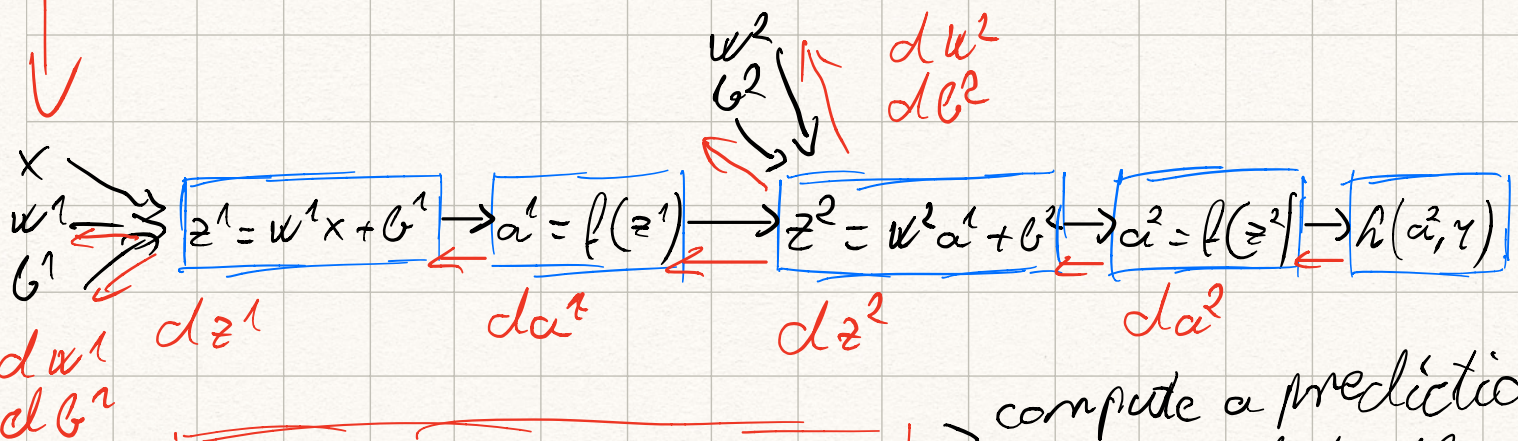 w² dw²
b² db²
x
w¹ z¹ = w¹x + b¹ → a¹ = f(z¹) → z² = w²a¹ + b² → a² = f(z²) → h(a², y)
b¹
dz¹ da¹ dz² da²
dw¹
db¹
compute a predictio